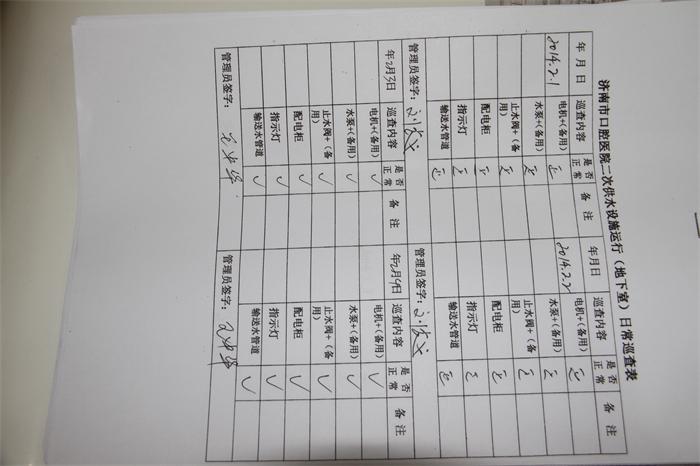 济南市口腔医院二次供水设施运行（地下室）日常巡查表
年 月 日 巡查内容 是否正常 备 注 年 月 日 巡查内容 是否正常 备 注
2014.2.1 电机+(备用) 正 2014.2.2 电机+(备用) 正
水泵+(备用) 正 水泵+(备用) 正
止水阀+（备用） 正 止水阀+（备用） 正
配电柜 正 配电柜 正
指示灯 正 指示灯 正
输送水管道 正 输送水管道 正
管理员签字： 管理员签字：
年2月3日 巡查内容 是否正常 备 注 年2月4日 巡查内容 是否正常 备 注
电机+(备用) ✓ 电机+(备用) ✓
水泵+(备用) ✓ 水泵+(备用) ✓
止水阀+（备用） ✓ 止水阀+（备用） ✓
配电柜 ✓ 配电柜 ✓
指示灯 ✓ 指示灯 ✓
输送水管道 ✓ 输送水管道 ✓
管理员签字： 管理员签字：